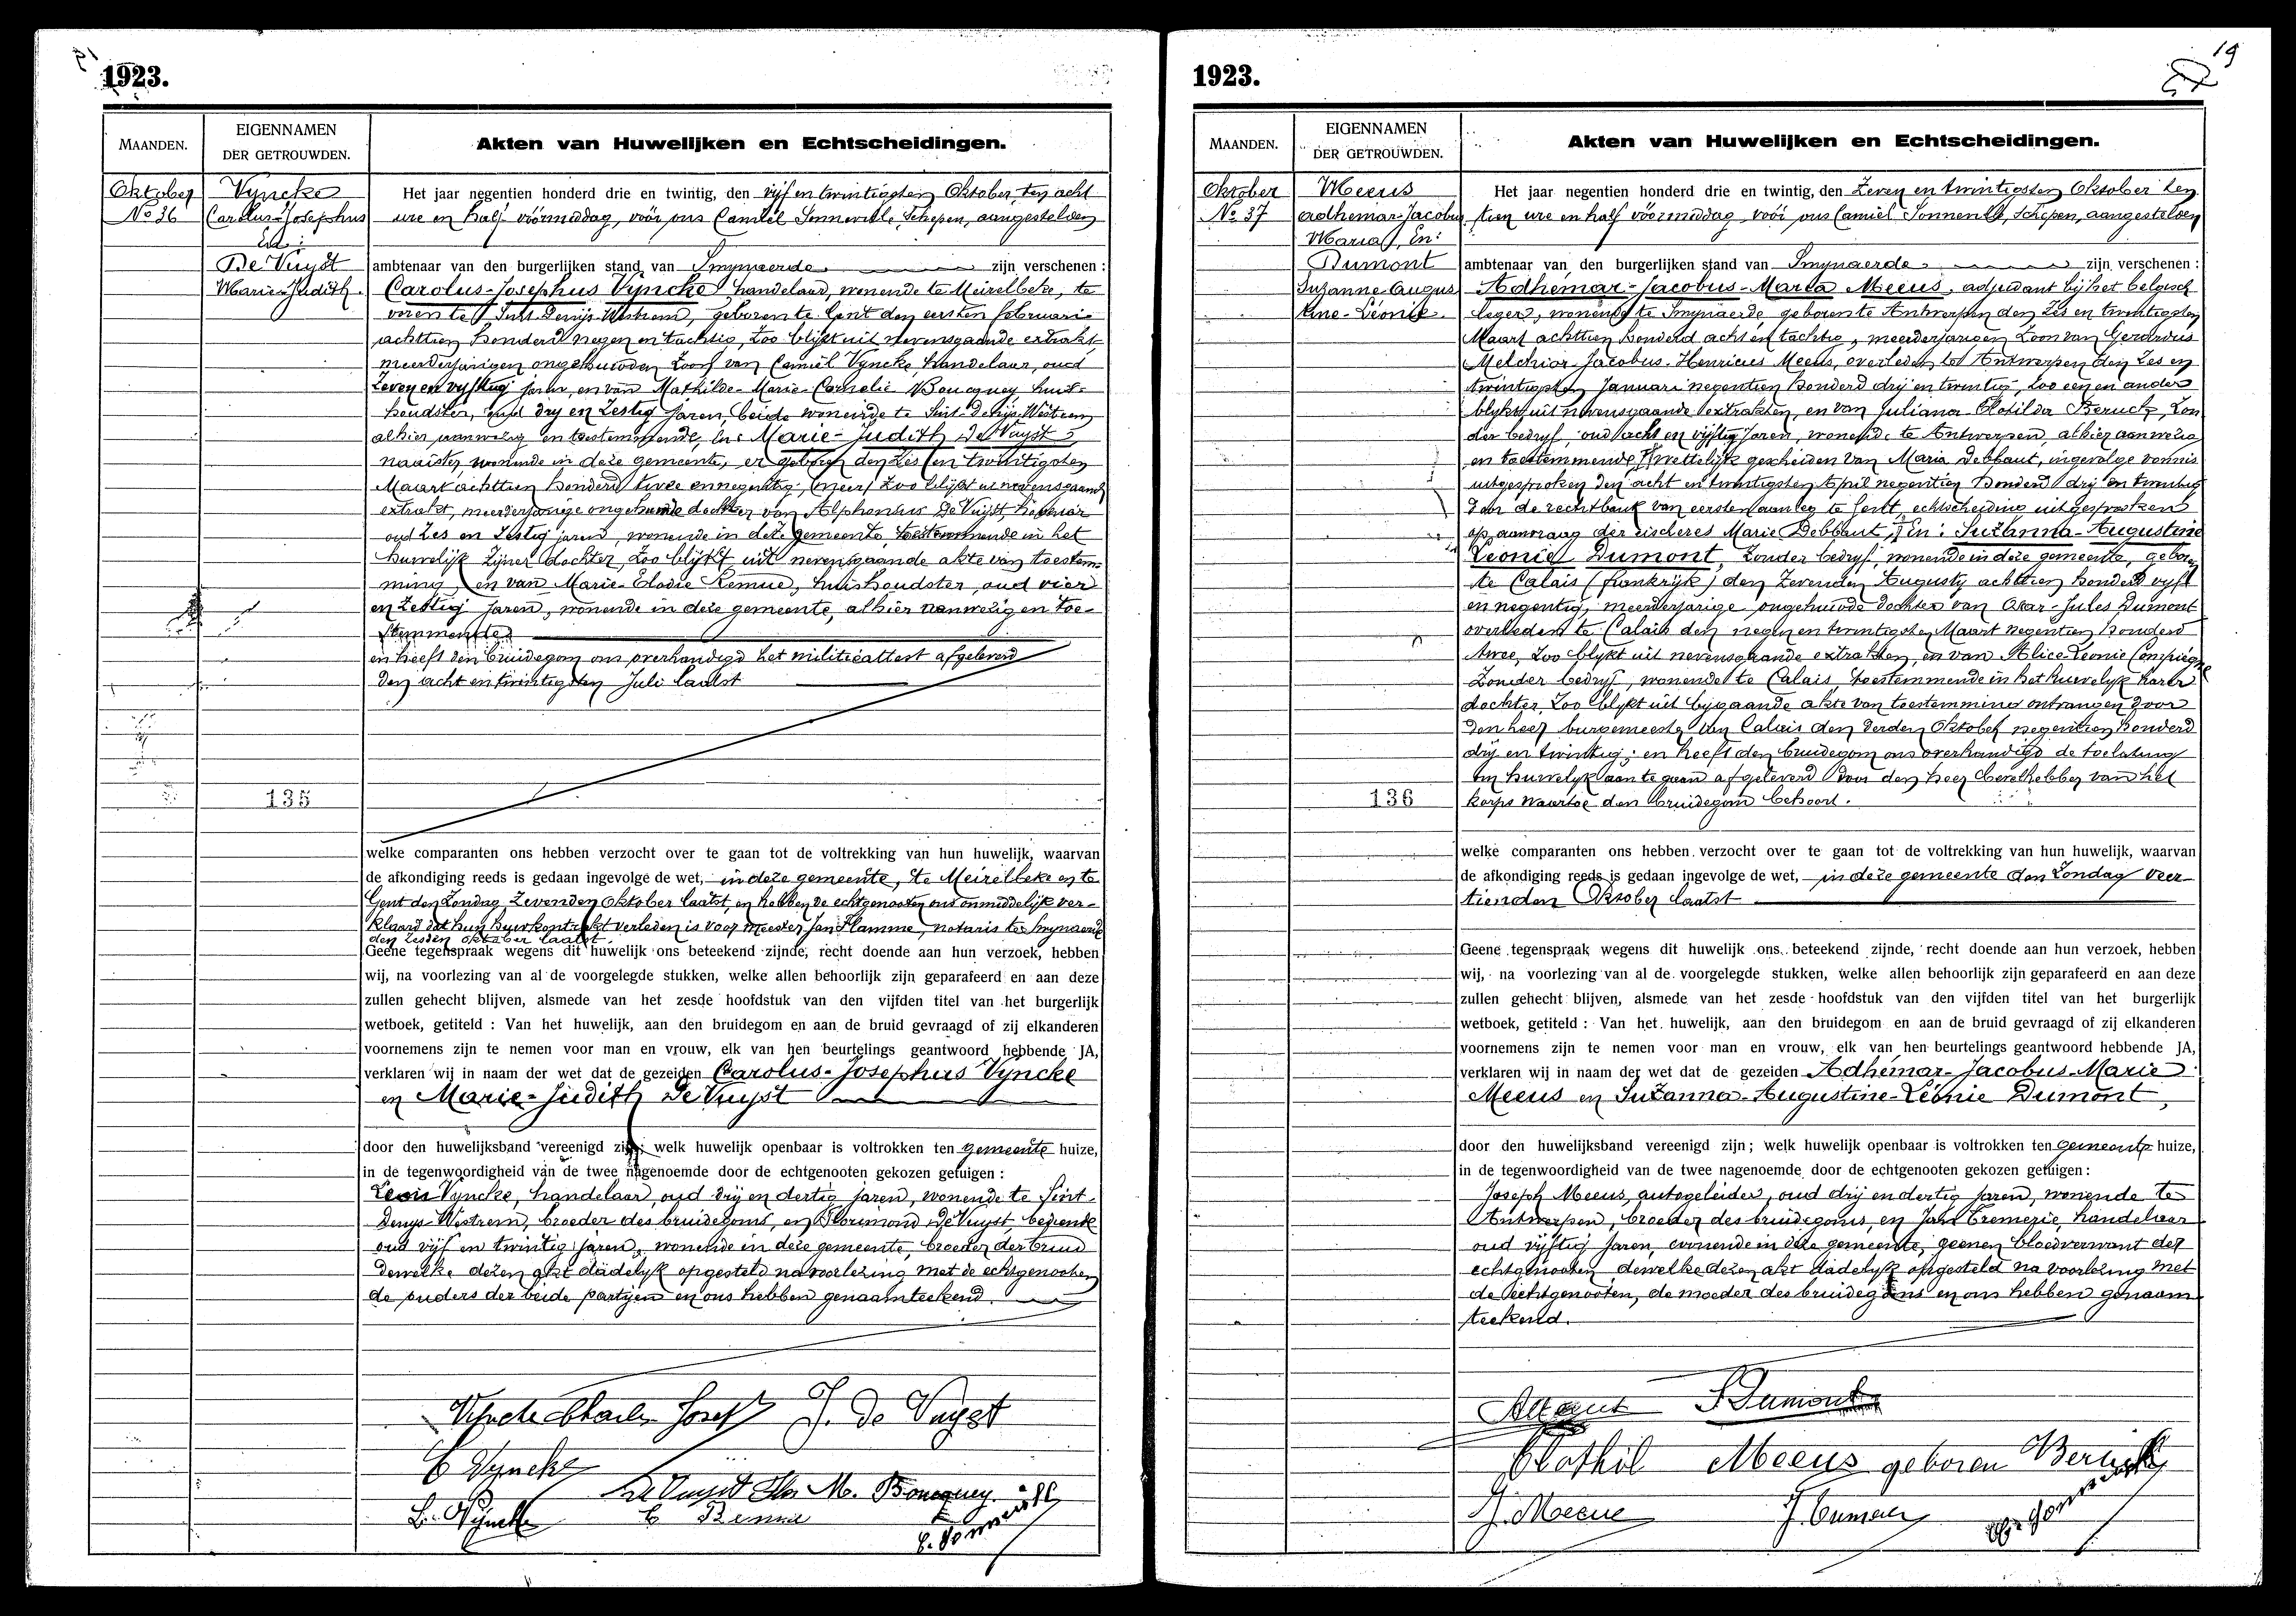 1923.
MAANDEN.
EIGENNAMEN
DER GETROUWDEN.
Akten van Huwelijken en Echtscheidingen.
Oktober
No 36
Vyncke
Carolus-Josephus
En:
De Vuyst
Marie-Judith.
Het jaar negentien honderd drie en twintig, den vijf en twintigsten Oktober, ten acht
ure en half vóórmiddag, vóór ons Camiel Sonneville, Schepen, aangestelden
ambtenaar van den burgerlijken stand van Smynaerde zijn verschenen :
Carolus-Josephus Vyncke handelaar, wonende te Meirelbeke, te
voren te Sint Denys-Westrem, geboren te Gent den eersten februari
achttien honderd negen en tachtig, zoo blijkt uit nevensgaande extrakt
meerderjarigen ongehuwden zoon van Camiel Vyncke, handelaar, oud
zeven en vyftig jaren, en van Mathilde-Marie-Cornelie Boucquey, huis-
houdster, oud dry en zestig jaren, beide wonende te Sint-Denijs-Westrem
alhier aanwezig en toestemmende, En: Marie-Judith De Vuyst
naaister, wonende in deze gemeente, er geboren den zes en twintigsten
Maart achttien honderd twee en negentig, zoo blijkt uit nevensgaand
extrakt, meerderjarige ongehuwde dochter van Alphonsus De Vuyst,
oud zes en zestig jaren, wonende in deze gemeente, toestemmende in het
huwelijk zijner dochter, zoo blijkt uit nevensgaande akte van toestem-
ming en van Marie-Elodie Remue, huishoudster, oud vier
en zestig jaren, wonende in deze gemeente, alhier aanwezig en toe-
stemmende
en heeft den bruidegom ons overhandigd het militieattest afgeleverd
den acht en twintigsten Juli laatst
135
welke comparanten ons hebben verzocht over te gaan tot de voltrekking van hun huwelijk, waarvan
de afkondiging reeds is gedaan ingevolge de wet, in deze gemeente, te Meirelbeke en te
Gent den Zondag zevenden Oktober laatst, en hebben de echtgenooten ons onmiddelijk ver-
klaard dat hun huwkontrakt verleden is voor Meester Jan Flamme, notaris te Smynaerde
den zesden oktober laatst.
Geene tegenspraak wegens dit huwelijk ons beteekend zijnde, recht doende aan hun verzoek, hebben
wij, na voorlezing van al de voorgelegde stukken, welke allen behoorlijk zijn geparafeerd en aan deze
zullen gehecht blijven, alsmede van het zesde hoofdstuk van den vijfden titel van het burgerlijk
wetboek, getiteld : Van het huwelijk, aan den bruidegom en aan de bruid gevraagd of zij elkanderen
voornemens zijn te nemen voor man en vrouw, elk van hen beurtelings geantwoord hebbende JA,
verklaren wij in naam der wet dat de gezeiden Carolus-Josephus Vyncke
en Marie-Judith De Vuyst
door den huwelijksband vereenigd zijn; welk huwelijk openbaar is voltrokken ten gemeente huize,
in de tegenwoordigheid van de twee nagenoemde door de echtgenooten gekozen getuigen :
Leon Vyncke, handelaar, oud drij en dertig jaren, wonende te Sint
Denys-Westrem, broeder des bruidegoms, en Florimond De Vuyst, bediende
oud vijf en twintig jaren, wonende in deze gemeente, broeder der bruid
dewelke dezen akt dadelijk opgesteld na voorlezing met de echtgenooten
de ouders der beide partijen en ons hebben genaamteekend.
Vyncke Charles Josef J. De Vuyst
C Vyncke
De Vuyst Flor M. Boucquey.
L. Vyncke E Remue
C. Sonneville
1923.
19
MAANDEN.
EIGENNAMEN
DER GETROUWDEN.
Akten van Huwelijken en Echtscheidingen.
Oktober
No 37
Meeus
Adhemar-Jacobus
Maria, En:
Dumont
Suzanne-Augus
tine-Léonie.
Het jaar negentien honderd drie en twintig, den zeven en twintigsten Oktober ten
tien ure en half vóórmiddag, vóór ons Camiel Sonneville, Schepen, aangestelden
ambtenaar van den burgerlijken stand van Smynaerde zijn verschenen :
Adhemar-Jacobus-Maria Meeus, adjudant bij het belgisch
leger, wonende te Smynaerde geboren te Antwerpen den zes en twintigsten
Maart achttien honderd acht en tachtig, meerderjarigen zoon van Gerardus
Melchior-Jacobus-Henricus Meeus, overleden te Antwerpen den zes en
twintigsten Januari negentien honderd drij en twintig, zoo een en ander
blykt uit nevensgaande extrakten, en van Juliana Clotilda Beruck, zon
der bedryf, oud acht en vijftig jaren, wonende te Antwerpen, alhier aanwezig
en toestemmende, wettelijk gescheiden van Maria Debbaut, ingevolge vonnis
uitgesproken den acht en twintigsten April negentien honderd drij en twintig
van de rechtbank van eersten aanleg te Gent, echtscheiding uitgesproken
op aanvraag der eischeres Marie Debbaut, En: Suzanna-Augustine
Leonie Dumont, zonder bedryf, wonende in deze gemeente, geboren
te Calais (frankrijk) den zevenden Augusty achttien honderd vyf
en negentig, meerderjarige ongehuwde dochter van Oscar-Jules Dumont
overleden te Calais den negen en twintigsten Maart negentien honderd
twee, zoo blykt uit nevensgaande extrakten, en van Alice-Leonie Compiègne
zonder bedryf, wonende te Calais toestemmende in het huwelyk harer
dochter, zoo blykt uit bygaande akte van toestemming ontvangen door
den heer burgemeester van Calais den derden Oktober negentien honderd
drij en twintig; en heeft den bruidegom ons overhandigd de toelating
tot huwelyk aan te gaan afgeleverd door den heer bevelhebber van het
korps waartoe den bruidegom behoort.
136
welke comparanten ons hebben verzocht over te gaan tot de voltrekking van hun huwelijk, waarvan
de afkondiging reeds is gedaan ingevolge de wet, in deze gemeente den Zondag veer-
tienden Oktober laatst
Geene tegenspraak wegens dit huwelijk ons beteekend zijnde, recht doende aan hun verzoek, hebben
wij, na voorlezing van al de voorgelegde stukken, welke allen behoorlijk zijn geparafeerd en aan deze
zullen gehecht blijven, alsmede van het zesde hoofdstuk van den vijfden titel van het burgerlijk
wetboek, getiteld : Van het huwelijk, aan den bruidegom en aan de bruid gevraagd of zij elkanderen
voornemens zijn te nemen voor man en vrouw, elk van hen beurtelings geantwoord hebbende JA,
verklaren wij in naam der wet dat de gezeiden Adhémar-Jacobus-Marie
Meeus en Suzanna-Augustine-Léonie Dumont,
door den huwelijksband vereenigd zijn; welk huwelijk openbaar is voltrokken ten gemeente huize,
in de tegenwoordigheid van de twee nagenoemde door de echtgenooten gekozen getuigen :
Joseph Meeus, autogeleider, oud drij en dertig jaren, wonende te
Antwerpen, broeder des bruidegoms, en Jan Cremerie, handelaar
oud vijftig jaren, wonende in deze gemeente, geenen bloedverwant der
echtgenooten dewelke dezen akt dadelyk opgesteld na voorlezing met
de echtgenooten, de moeder des bruidegoms en ons hebben genaam
teekend.
S Dumont
Clothil Meeus geboren Beruck
J. Meeus